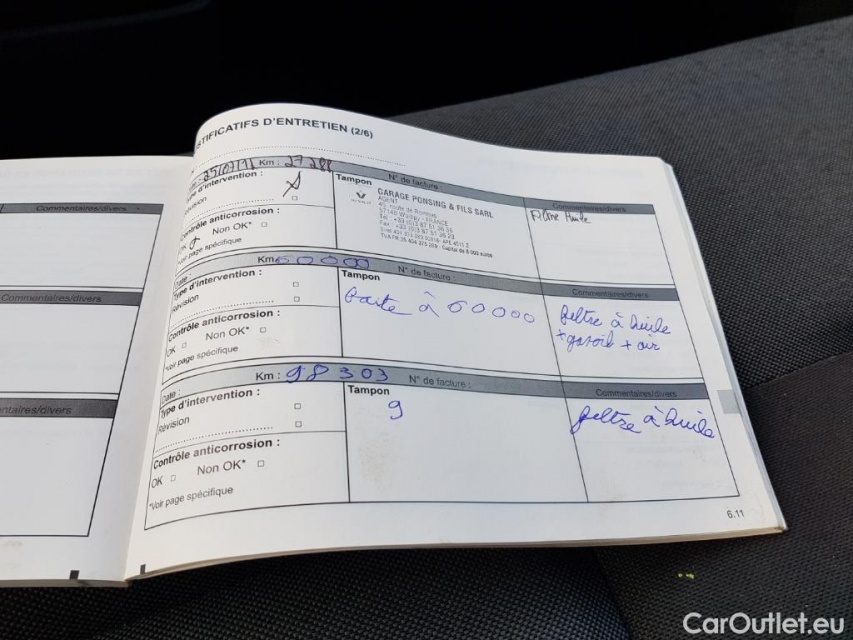 Commentaires/divers
Commentaires/divers
Commentaires/divers
JUSTIFICATIFS D'ENTRETIEN (2/6)
Km : N° de facture :
Type d'intervention :
Révision
Contrôle anticorrosion :
OK Non OK*
*Voir page spécifique
Tampon
GARAGE PONSING & FILS SARL
AGENT
Commentaires/divers
Filtre Huile
Date : Km : 60000 N° de facture :
Type d'intervention :
Révision
Contrôle anticorrosion :
OK Non OK*
*Voir page spécifique
Tampon
faite à 60000
Commentaires/divers
filtre à huile
+ gasoil + air
Date : Km : 98303 N° de facture :
Type d'intervention :
Révision
Contrôle anticorrosion :
OK Non OK*
*Voir page spécifique
Tampon
9
Commentaires/divers
filtre à huile
6.11
CarOutlet.eu